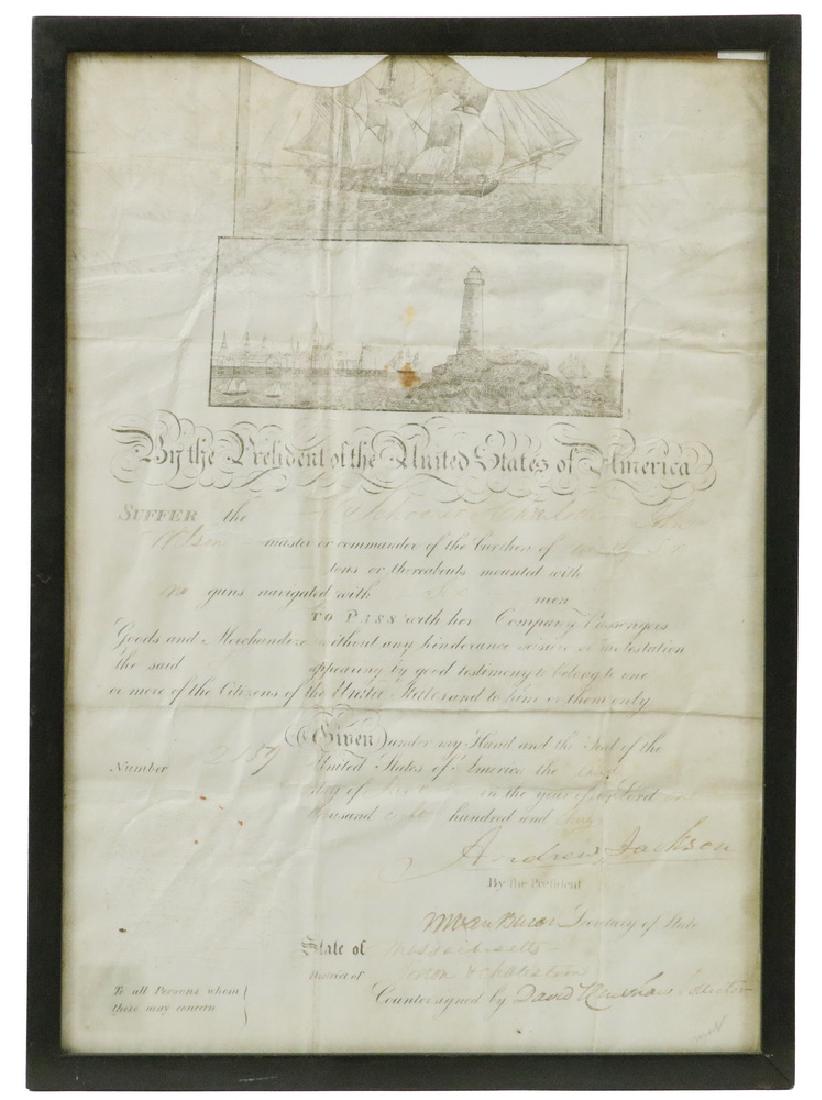 By the President of the United States of America
SUFFER the Schooner John
Wilson master or commander of the burthen of
tons or thereabouts mounted with
no guns navigated with Six men
TO PASS with her Company Passengers
Goods and Merchandize without any hinderance seisure or molestation
the said appearing by good testimony to belong to one
or more of the Citizens of the United States and to him or them only
Given under my Hand and the Seal of the
Number 2159 United States of America the
day of in the year of our Lord one
thousand eight hundred and thirty
Andrew Jackson
By the President
M Van Buren Secretary of State
State of Massachusetts
District of Boston & Charlestown
To all Persons whom
these may concern
Countersigned by David Henshaw Collector